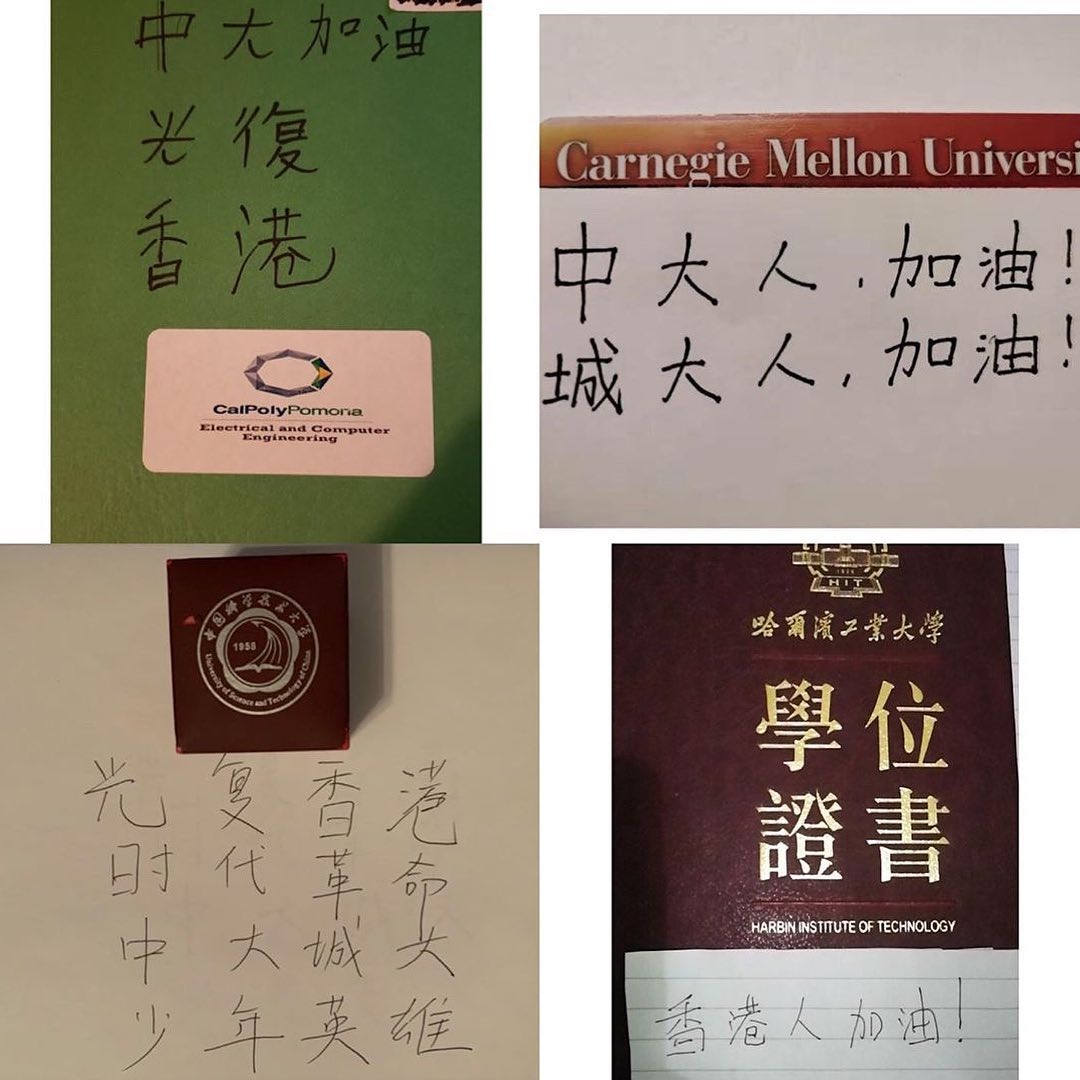 中大加油
光復
香港
CalPolyPomona
Electrical and Computer
Engineering
Carnegie Mellon Universi
中大人,加油!
城大人,加油!
中国科学技术大学
1958
University of Science and Technology of China
光复香港
时代革命
中大城大
少年英雄
HIT
哈爾濱工業大學
學位
證書
HARBIN INSTITUTE OF TECHNOLOGY
香港人加油!